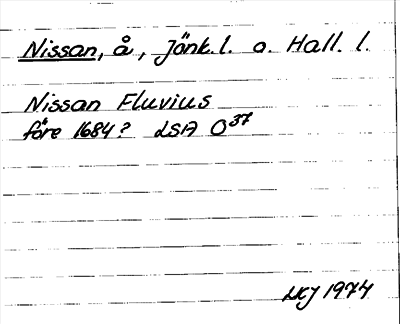 Nissan, å, Jönk.l. o. Hall. l.
Nissan Fluvius
före 1684? LSA O37
1974